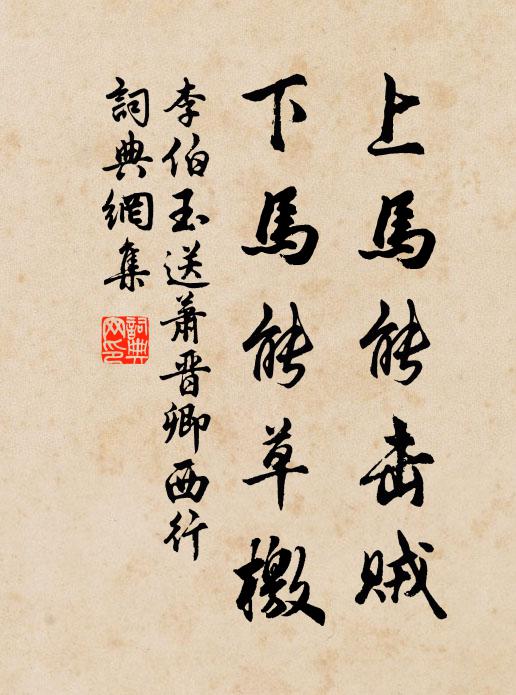 上馬能击賊
下馬能草檄
李伯玉送蕭晋卿西行
詞典網集
詞典
网印